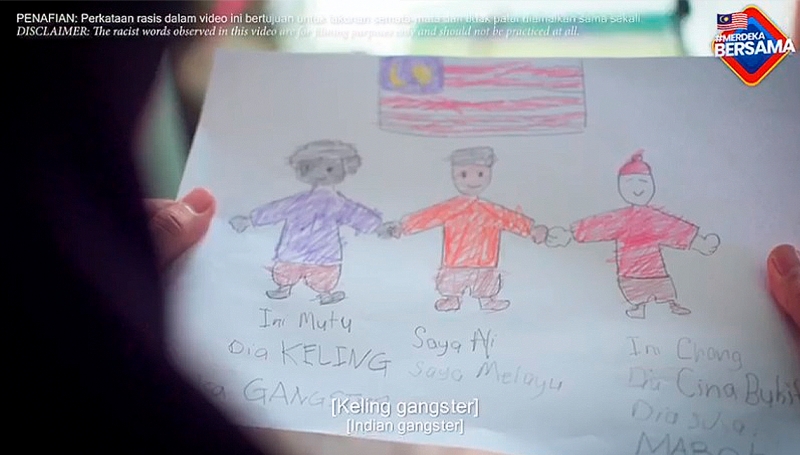 PENAFIAN: Perkataan rasis dalam video ini bertujuan untuk lakonan semata-mata dan tidak patut diamalkan sama sekali.
DISCLAIMER: The racist words observed in this video are for filming purposes only and should not be practiced at all.
#MERDEKA
BERSAMA
Ini Mutu
Dia KELING
GANGSTER
Saya Ali
Saya Melayu
Ini Chong
Dia Cina Bukit
Dia suka
[Keling gangster]
[Indian gangster]